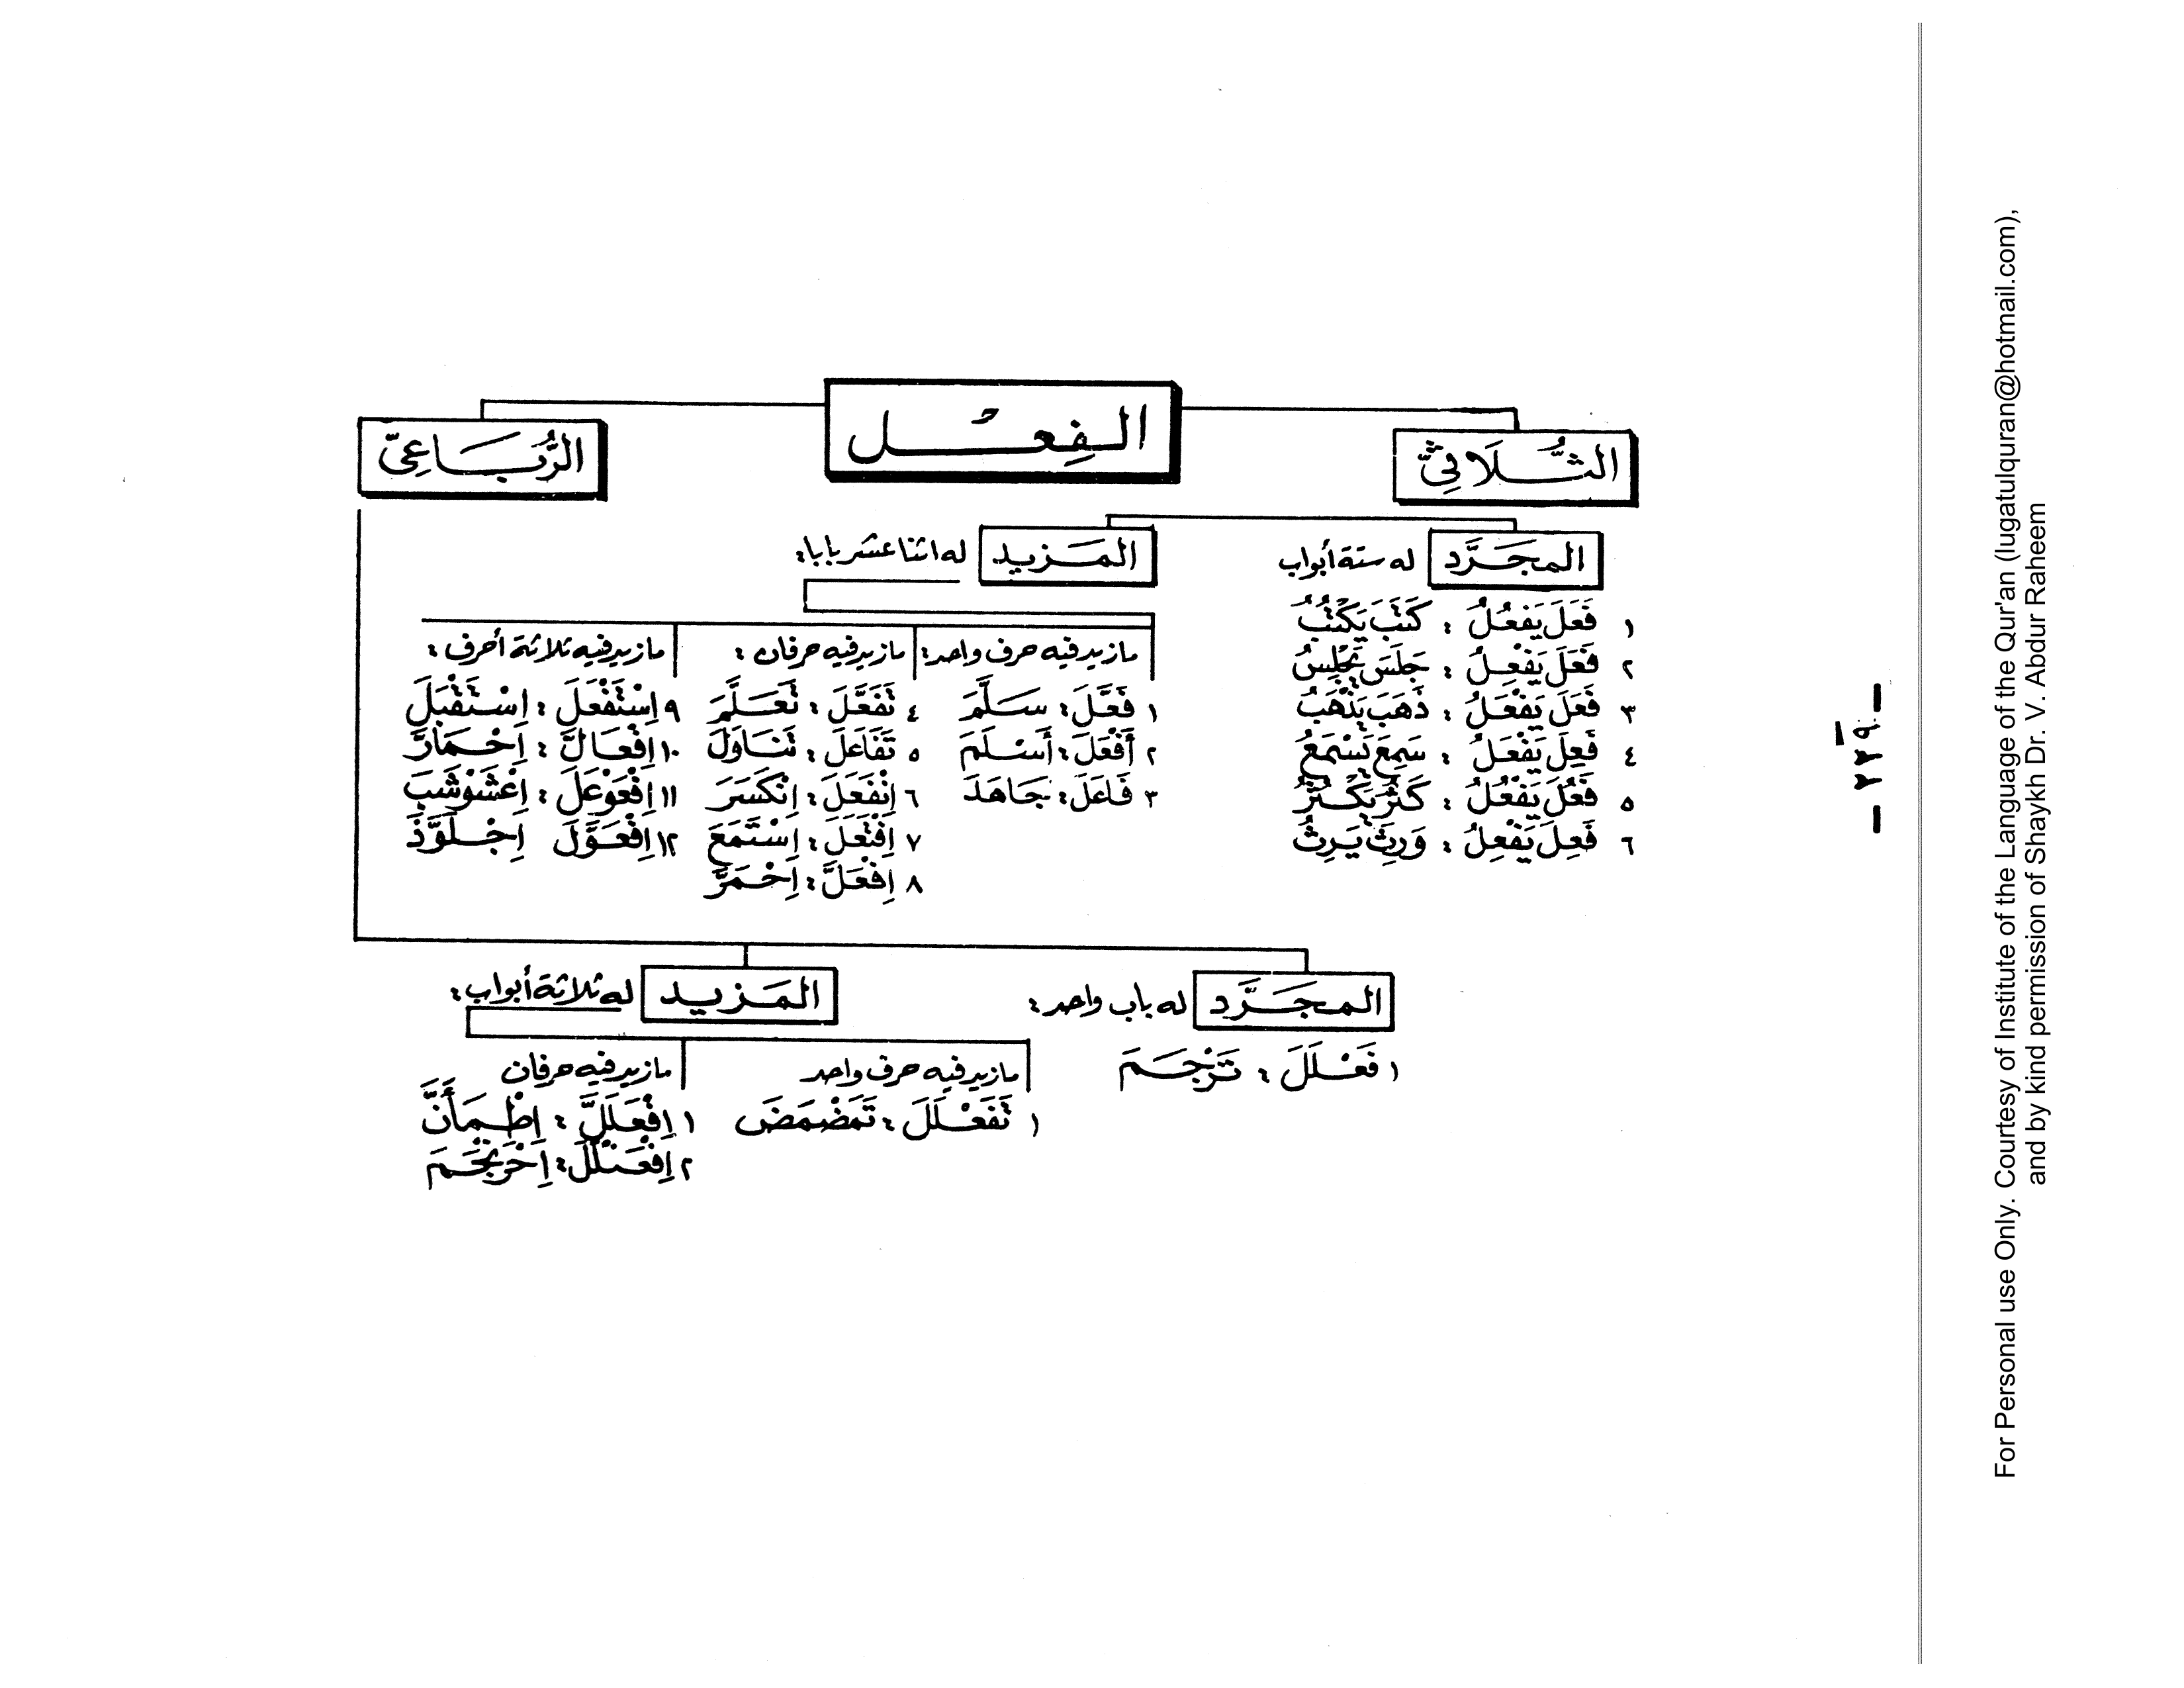 الفِعْل
الثُّلَاثِيّ
الرُّبَاعِيّ
المجَرَّد له ستة أبواب
١ فَعَلَ يَفْعُلُ : كَتَبَ يَكْتُبُ
٢ فَعَلَ يَفْعِلُ : جَلَسَ يَجْلِسُ
٣ فَعَلَ يَفْعَلُ : ذَهَبَ يَذْهَبُ
٤ فَعِلَ يَفْعَلُ : سَمِعَ يَسْمَعُ
٥ فَعُلَ يَفْعُلُ : كَثُرَ يَكْثُرُ
٦ فَعِلَ يَفْعِلُ : وَرِثَ يَرِثُ
المَزيد له اثنا عشر بابا :
ما زيد فيه حرف واحد :
١ فَعَّلَ : سَلَّمَ
٢ أَفْعَلَ : أَسْلَمَ
٣ فَاعَلَ : جَاهَدَ
ما زيد فيه حرفان :
٤ تَفَعَّلَ : تَعَلَّمَ
٥ تَفَاعَلَ : تَنَاوَلَ
٦ اِنْفَعَلَ : اِنْكَسَرَ
٧ اِفْتَعَلَ : اِسْتَمَعَ
٨ اِفْعَلَّ : اِحْمَرَّ
ما زيد فيه ثلاثة أحرف :
٩ اِسْتَفْعَلَ : اِسْتَقْبَلَ
١٠ اِفْعَالَّ : اِحْمَارَّ
١١ اِفْعَوْعَلَ : اِعْشَوْشَبَ
١٢ اِفْعَوَّلَ اِجْلَوَّذَ
المجَرَّد له باب واحد :
١ فَعْلَلَ : تَرْجَمَ
المَزيد له ثلاثة أبواب :
ما زيد فيه حرف واحد
١ تَفَعْلَلَ : تَمَضْمَضَ
ما زيد فيه حرفان
١ اِفْعَلَلَّ : اِطْمَأَنَّ
٢ اِفْعَنْلَلَ : اِحْرَنْجَمَ
– ٢٢٩ –
For Personal use Only. Courtesy of Institute of the Language of the Qur'an (lugatulquran@hotmail.com),
and by kind permission of Shaykh Dr. V. Abdur Raheem